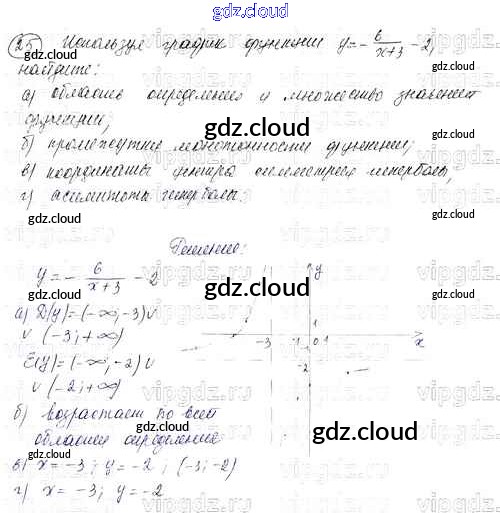 gdz.cloud
25 Используя график функции y = - 6/(x+3) - 2,
найдите:
а) область определения и множество значений
функции;
б) промежутки монотонности функции;
в) координаты центра симметрии гиперболы;
г) асимптоты гиперболы.
Решение:
y = - 6/(x+3) - 2
а) D(y) = (-∞; -3) ∪
∪ (-3; +∞)
E(y) = (-∞; -2) ∪
∪ (-2; +∞)
б) возрастает по всей
области определение
в) x = -3; y = -2; (-3; -2)
г) x = -3; y = -2
y
1
-3 -1 0 1 x
-2
gdz.cloud
gdz.cloud
gdz.cloud
gdz.cloud
gdz.cloud
gdz.cloud
gdz.cloud
gdz.cloud
gdz.cloud
gdz.cloud
vipgdz.ru